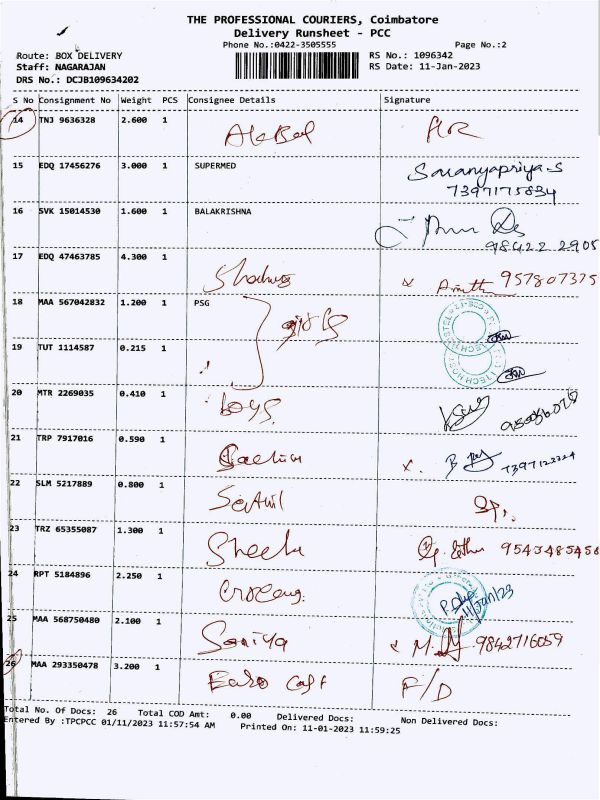 THE PROFESSIONAL COURIERS, Coimbatore
Delivery Runsheet - PCC
Phone No.:0422-3505555
Page No.:2
Route: BOX DELIVERY
RS No.: 1096342
Staff: NAGARAJAN
RS Date: 11-Jan-2023
DRS No.: DCJB109634202
S No Consignment No Weight PCS Consignee Details Signature
14 TNJ 9636328 2.600 1
15 EDQ 17456276 3.000 1 SUPERMED Saranyapriya-S
7397175834
16 SVK 15014530 1.600 1 BALAKRISHNA
98422 2905
17 EDQ 47463785 4.300 1 957807375
18 MAA 567042832 1.200 1 PSG
19 TUT 1114587 0.215 1
20 MTR 2269035 0.410 1 boys
21 TRP 7917016 0.590 1
22 SLM 5217889 0.800 1 Senthil
23 TRZ 65355087 1.300 1 Sheela 9543485456
24 RPT 5184896 2.250 1
11/Jan/23
25 MAA 568750480 2.100 1 Soniya 9842716059
26 MAA 293350478 3.200 1 F/D
Total No. Of Docs: 26 Total COD Amt: 0.00 Delivered Docs: Non Delivered Docs:
Entered By :TPCPCC 01/11/2023 11:57:54 AM Printed On: 11-01-2023 11:59:25